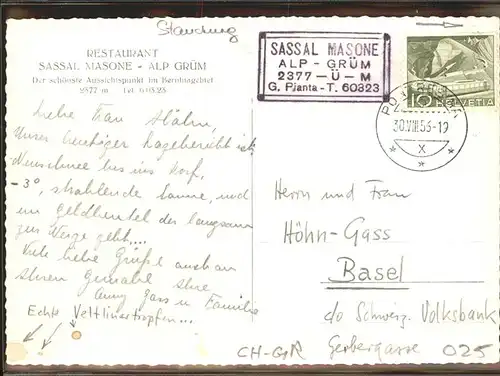 Standung
RESTAURANT
SASSAL MASONE - ALP GRÜM
Der schönste Aussichtspunkt im Berninagebiet
2377 m Tel. 6.03.23
SASSAL MASONE
ALP - GRÜM
2377 - Ü - M
G. Pianta - T. 60323
10 HELVETIA
30.VIII.53-19
X
Liebe Frau Höhn,
Unser heutiger Lagebericht ist:
Neuschnee bis ins Dorf,
-3°, strahlende Sonne, und
im Geldbeutel der langsam
zur Neige geht....
Viele liebe Grüße auch an
Ihren Gemahl Ihre
Anny Gass u. Familie
Echte Veltlinertropfen...
Herrn und Frau
Höhn-Gass
Basel
c/o Schweiz. Volksbank
Gerbergasse
CH-GR
025